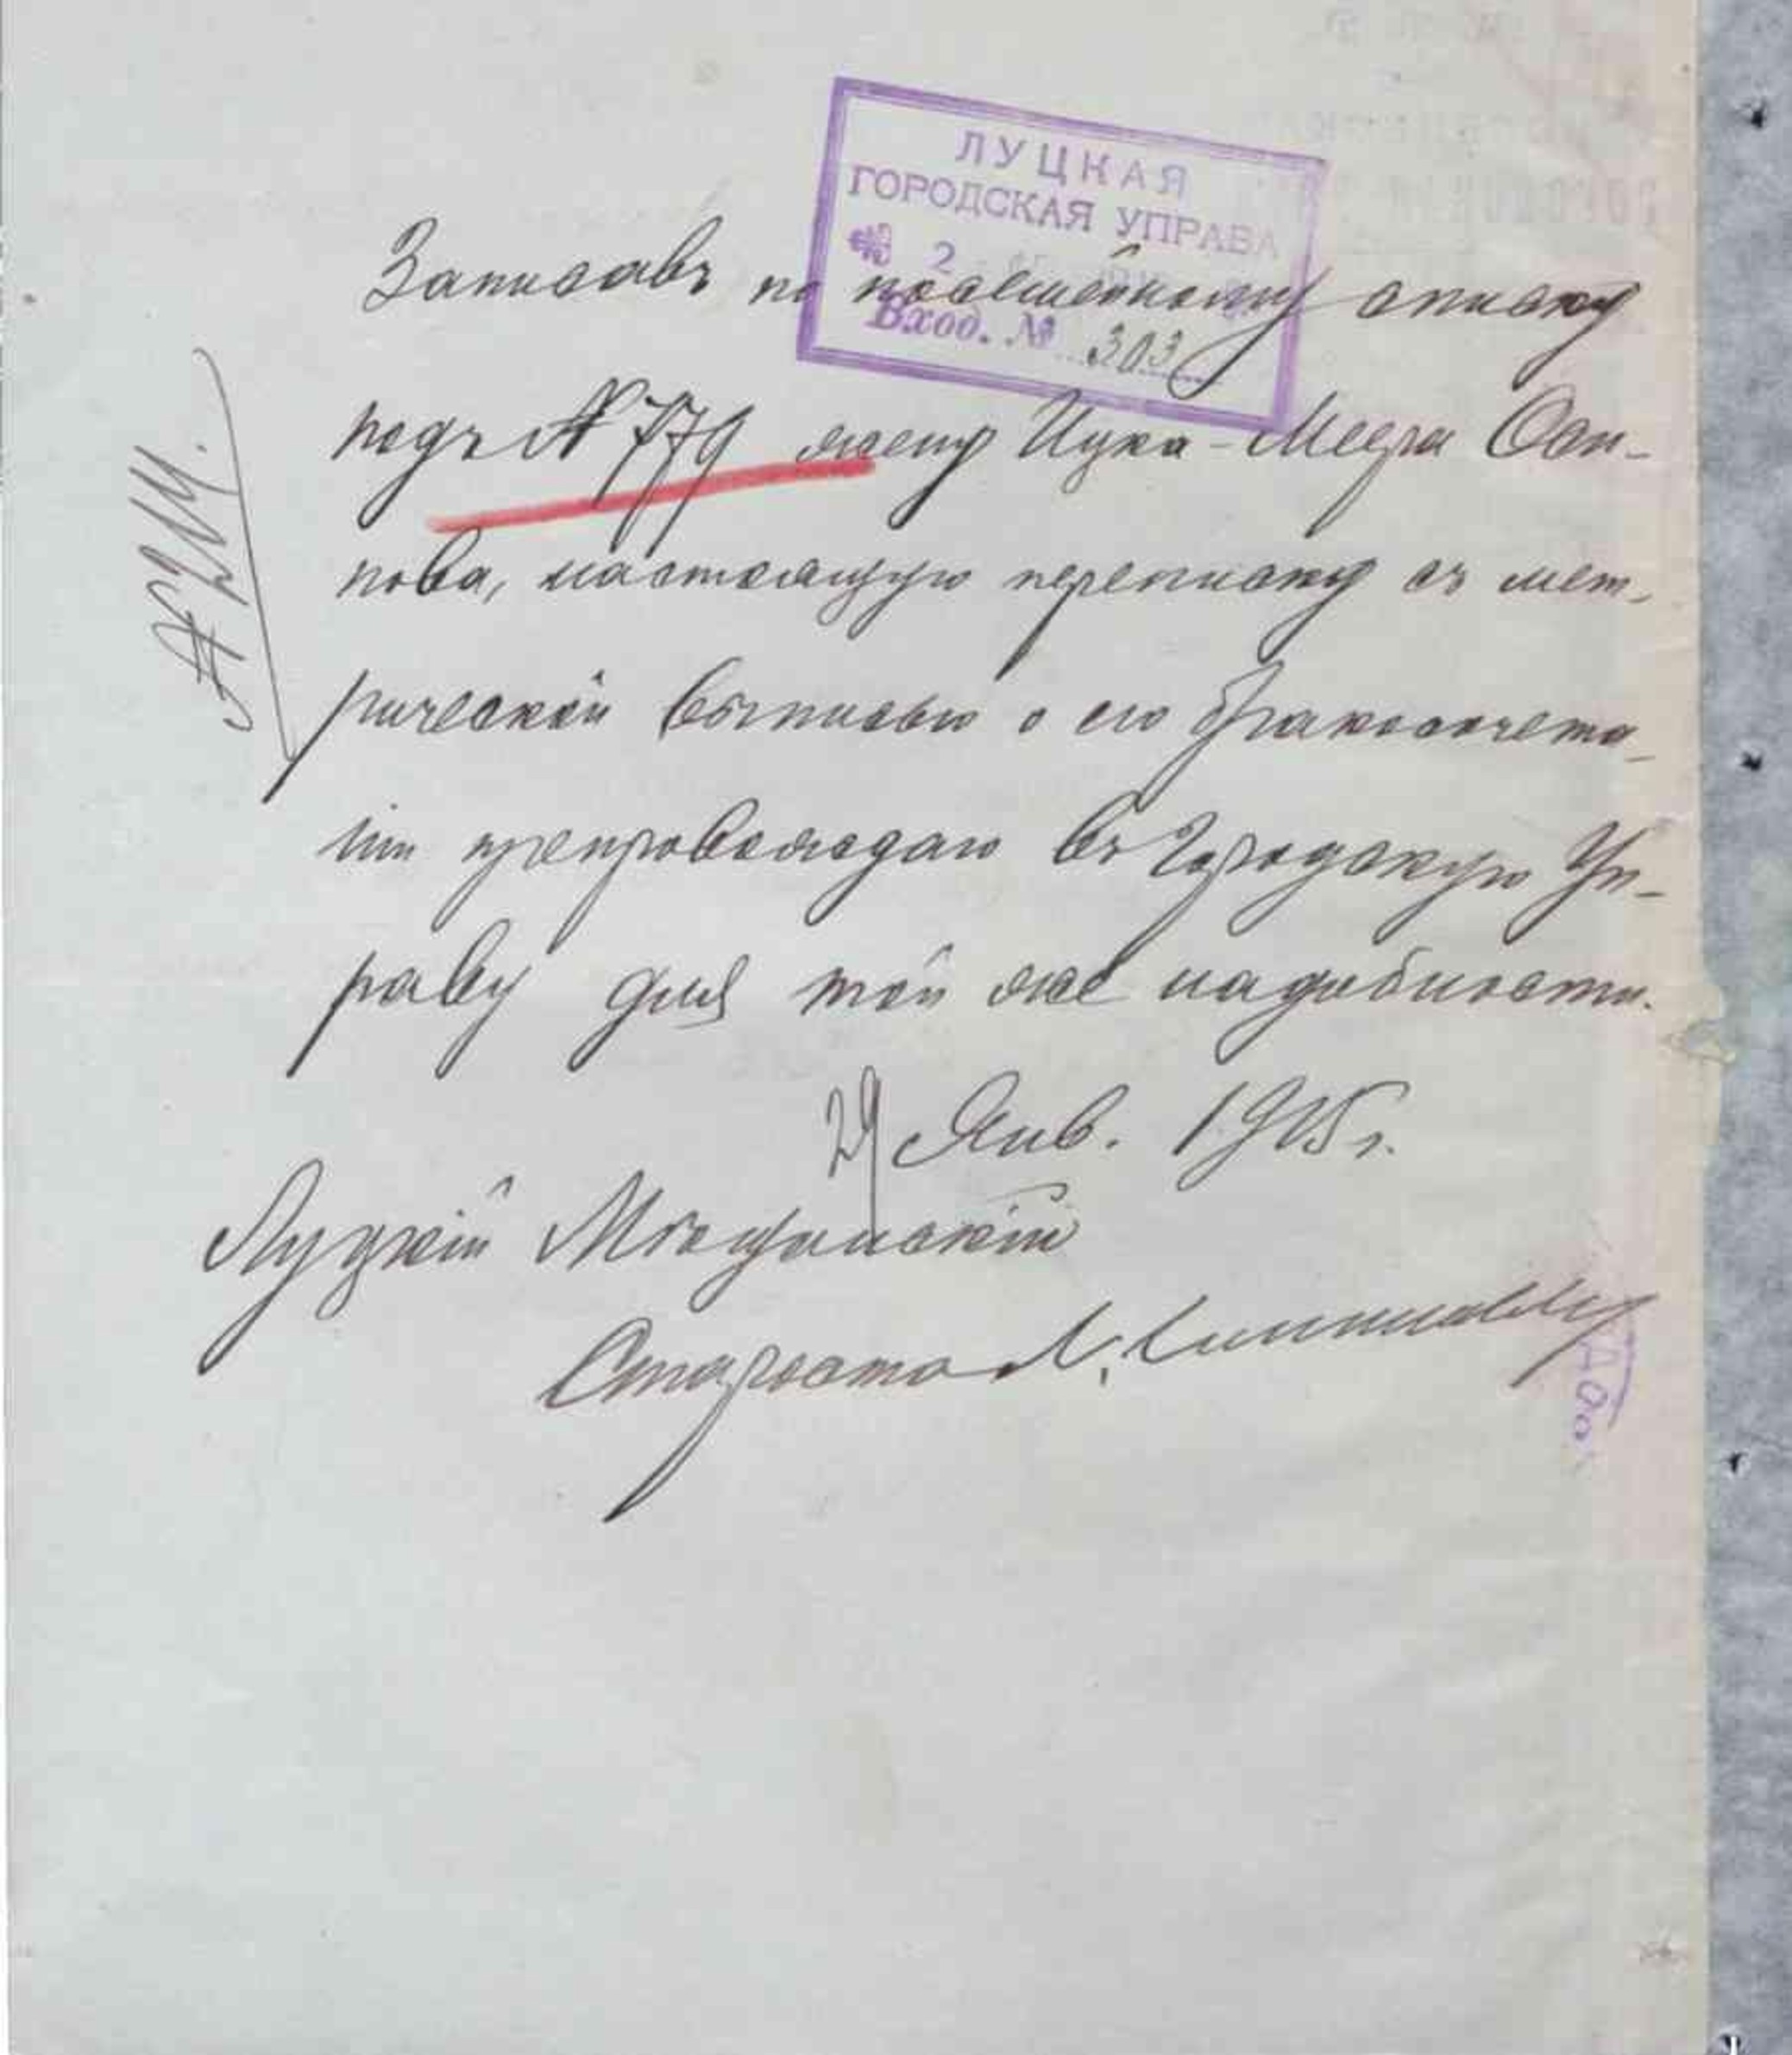 ЛУЦКАЯ
ГОРОДСКАЯ УПРАВА
2
Вход. № 303
Записавъ по посемейному списку
подъ № 779 жену Ицка-Меера Оси-
пова, настоящую переписку съ мет-
рической выписью о его бракосочета-
нiи препровождаю въ Городскую Уп-
раву для той же надобности.
29 Янв. 1905 г.
Луцкiй Мѣщанскiй
Староста